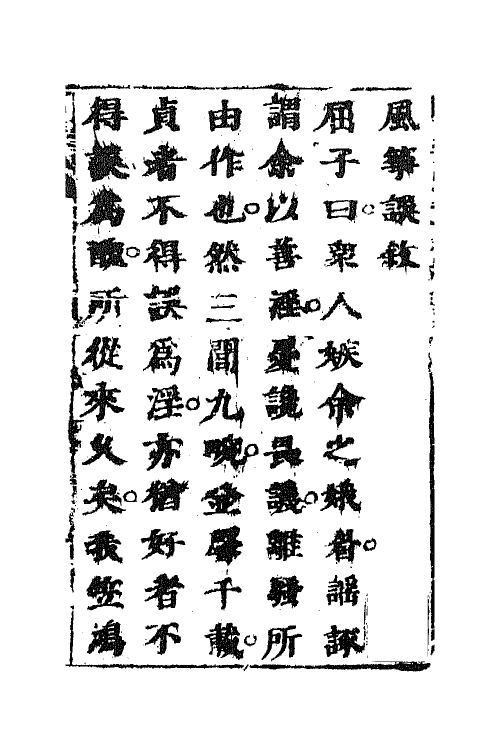 風箏誤敘
屈子曰。衆人嫉余之娥眉。謡諑
謂余以善淫。憂讒畏譏。離騷所
由作也。然三閭九畹。並馨千載。
貞者不得誤爲淫。亦猶好者不
得誤爲醜。所從來久矣。我笠鴻